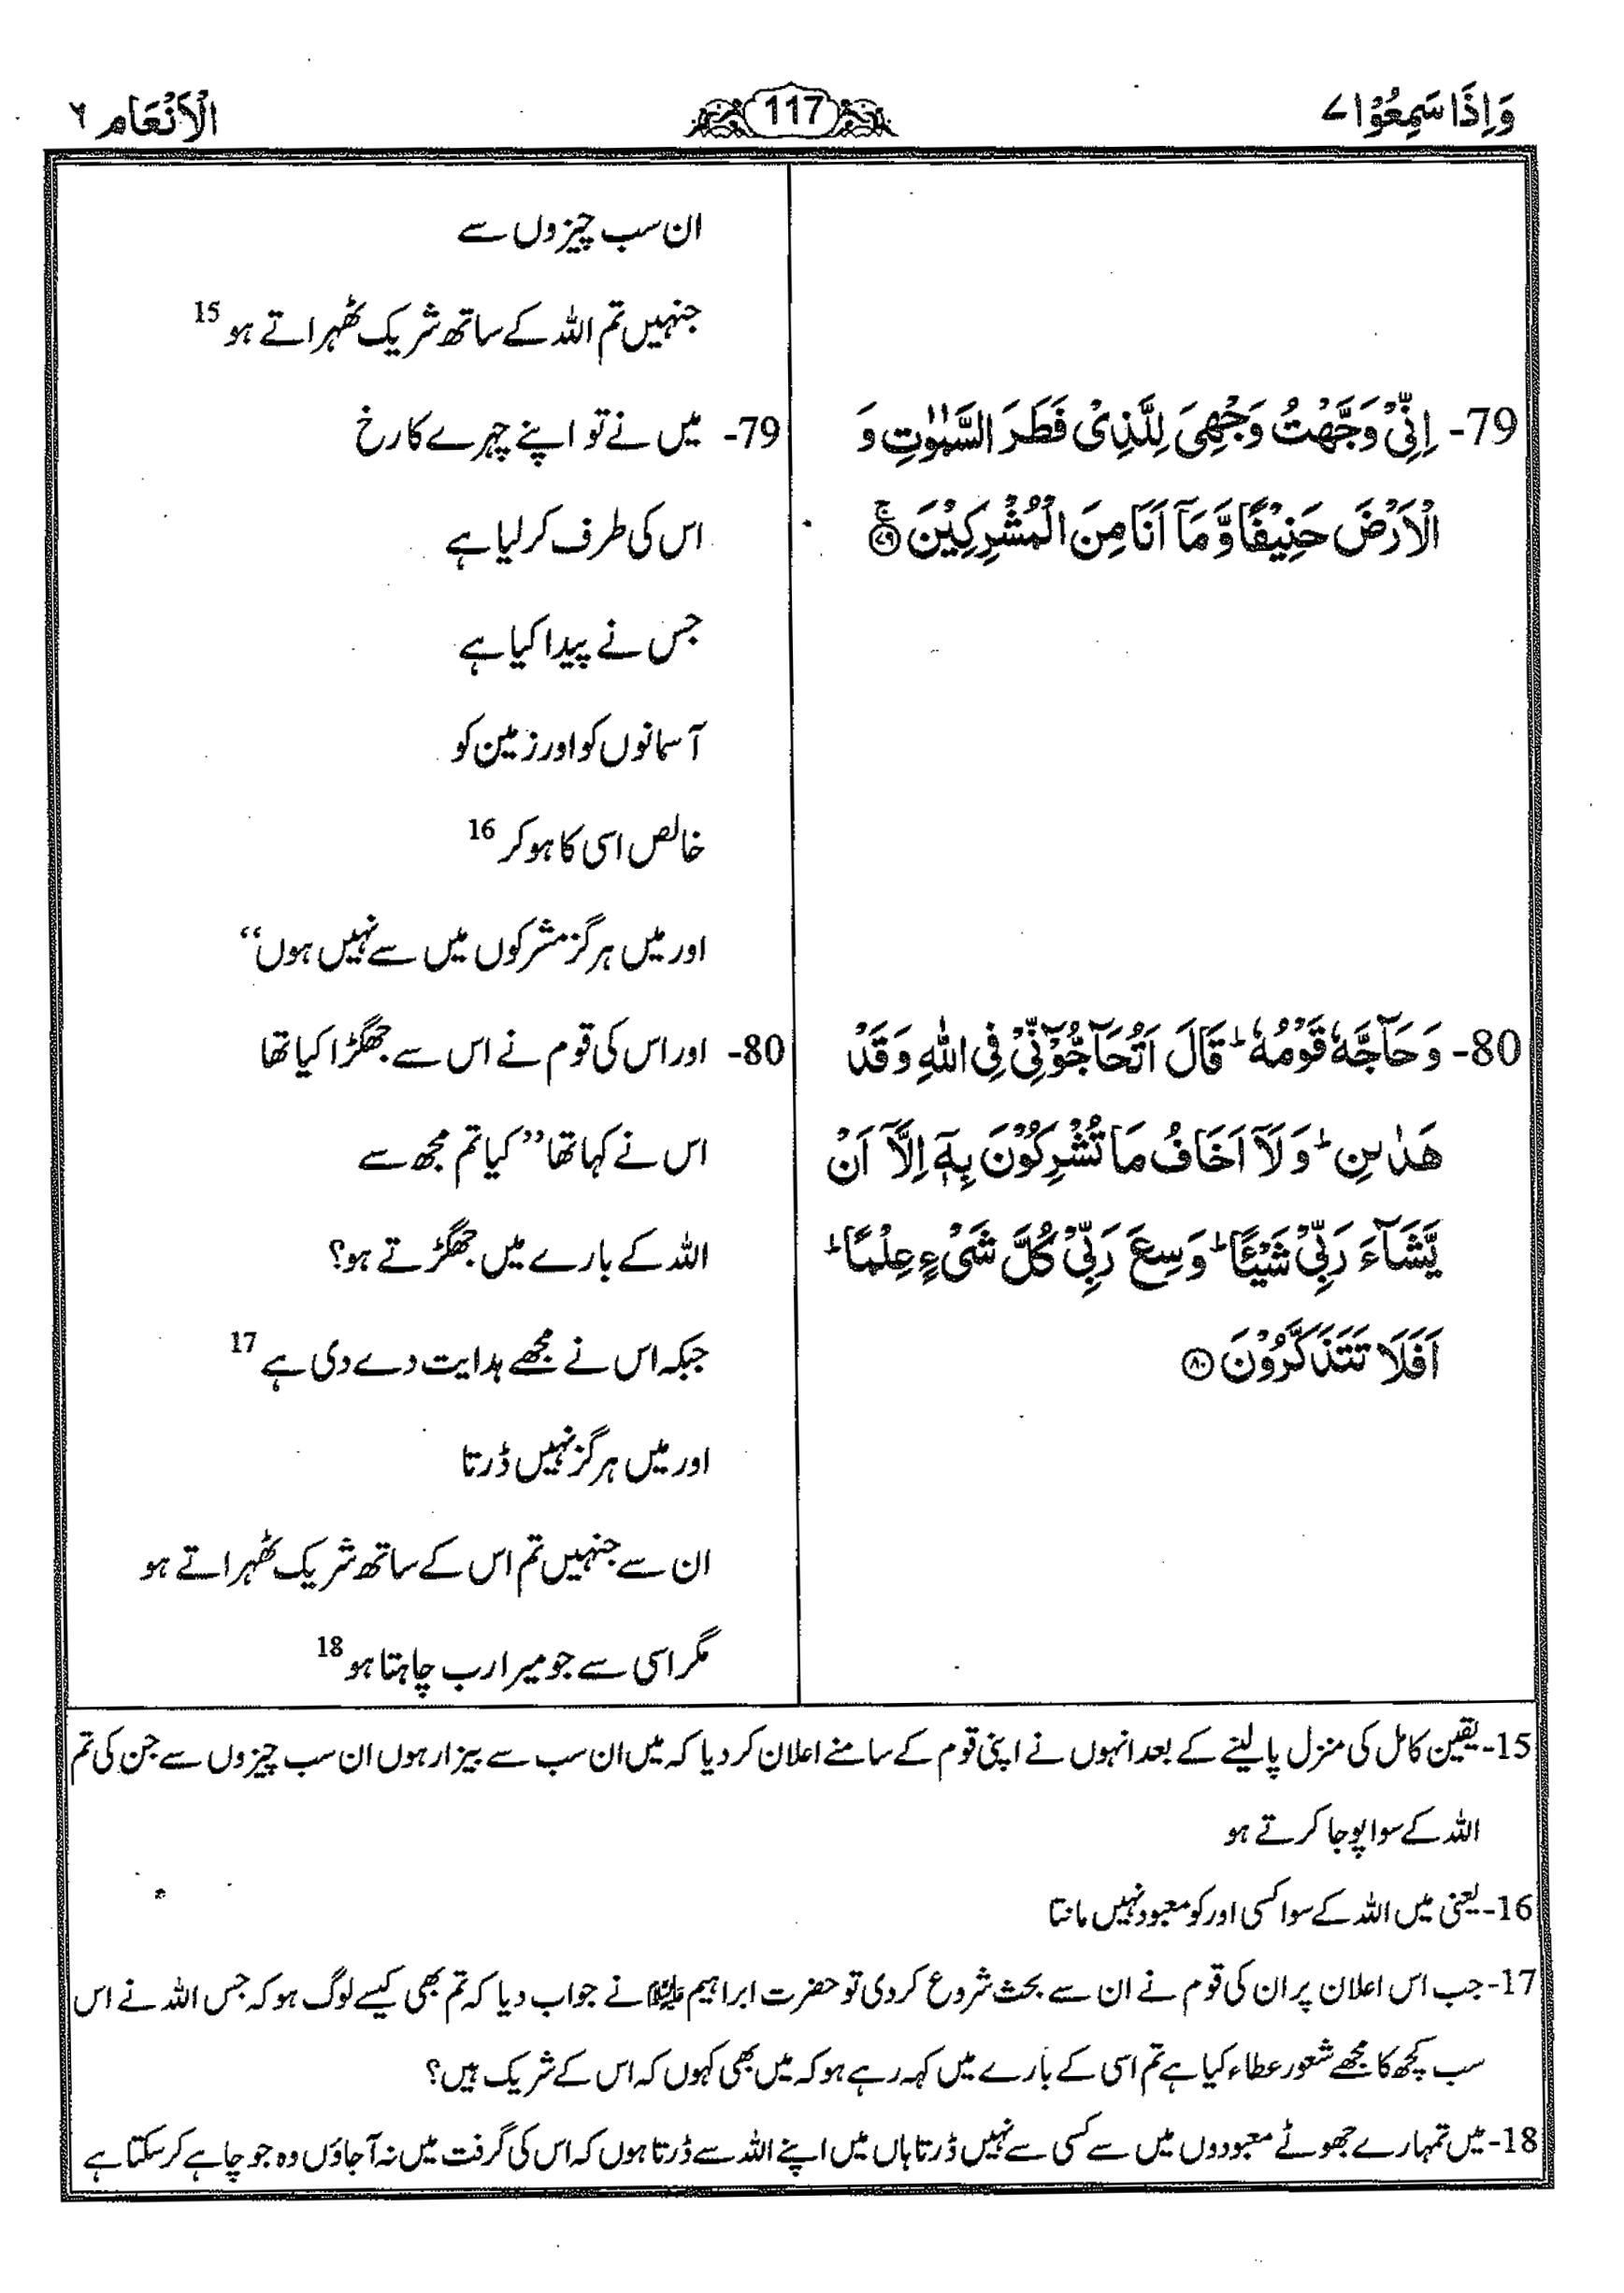 وَاِذَا سَمِعُوْا ۷
117
الْاَنْعَام ۶
79- اِنِّیْ وَجَّهْتُ وَجْهِیَ لِلَّذِیْ فَطَرَ السَّمٰوٰتِ وَ
الْاَرْضَ حَنِیْفًا وَّمَاۤ اَنَا مِنَ الْمُشْرِكِیْنَۚ ۷۹
80- وَحَآجَّهٗ قَوْمُهٗ ؕ قَالَ اَتُحَآجُّوْٓنِّیْ فِی اللّٰهِ وَقَدْ
هَدٰىنِ ؕ وَلَاۤ اَخَافُ مَا تُشْرِكُوْنَ بِهٖۤ اِلَّاۤ اَنْ
یَّشَآءَ رَبِّیْ شَیْئًا ؕ وَسِعَ رَبِّیْ كُلَّ شَیْءٍ عِلْمًا ؕ
اَفَلَا تَتَذَكَّرُوْنَ ۸۰
ان سب چیزوں سے
جنہیں تم اللہ کے ساتھ شریک ٹھہراتے ہو 15
79- میں نے تو اپنے چہرے کا رخ
اس کی طرف کر لیا ہے
جس نے پیدا کیا ہے
آسمانوں کو اور زمین کو
خالص اسی کا ہو کر 16
اور میں ہرگز مشرکوں میں سے نہیں ہوں“
80- اور اس کی قوم نے اس سے جھگڑا کیا تھا
اس نے کہا تھا ”کیا تم مجھ سے
اللہ کے بارے میں جھگڑتے ہو؟
جبکہ اس نے مجھے ہدایت دے دی ہے 17
اور میں ہرگز نہیں ڈرتا
ان سے جنہیں تم اس کے ساتھ شریک ٹھہراتے ہو
مگر اسی سے جو میرا رب چاہتا ہو 18
15- یقین کامل کی منزل پا لینے کے بعد انہوں نے اپنی قوم کے سامنے اعلان کر دیا کہ میں ان سب سے بیزار ہوں ان سب چیزوں سے جن کی تم
اللہ کے سوا پوجا کرتے ہو
16- یعنی میں اللہ کے سوا کسی اور کو معبود نہیں مانتا
17- جب اس اعلان پر ان کی قوم نے ان سے بحث شروع کر دی تو حضرت ابراہیم علیہ السلام نے جواب دیا کہ تم بھی کیسے لوگ ہو کہ جس اللہ نے اس
سب کچھ کا مجھے شعور عطاء کیا ہے تم اسی کے بارے میں کہہ رہے ہو کہ میں بھی کہوں کہ اس کے شریک ہیں؟
18- میں تمہارے جھوٹے معبودوں میں سے کسی سے نہیں ڈرتا ہاں میں اپنے اللہ سے ڈرتا ہوں کہ اس کی گرفت میں نہ آ جاؤں وہ جو چاہے کر سکتا ہے